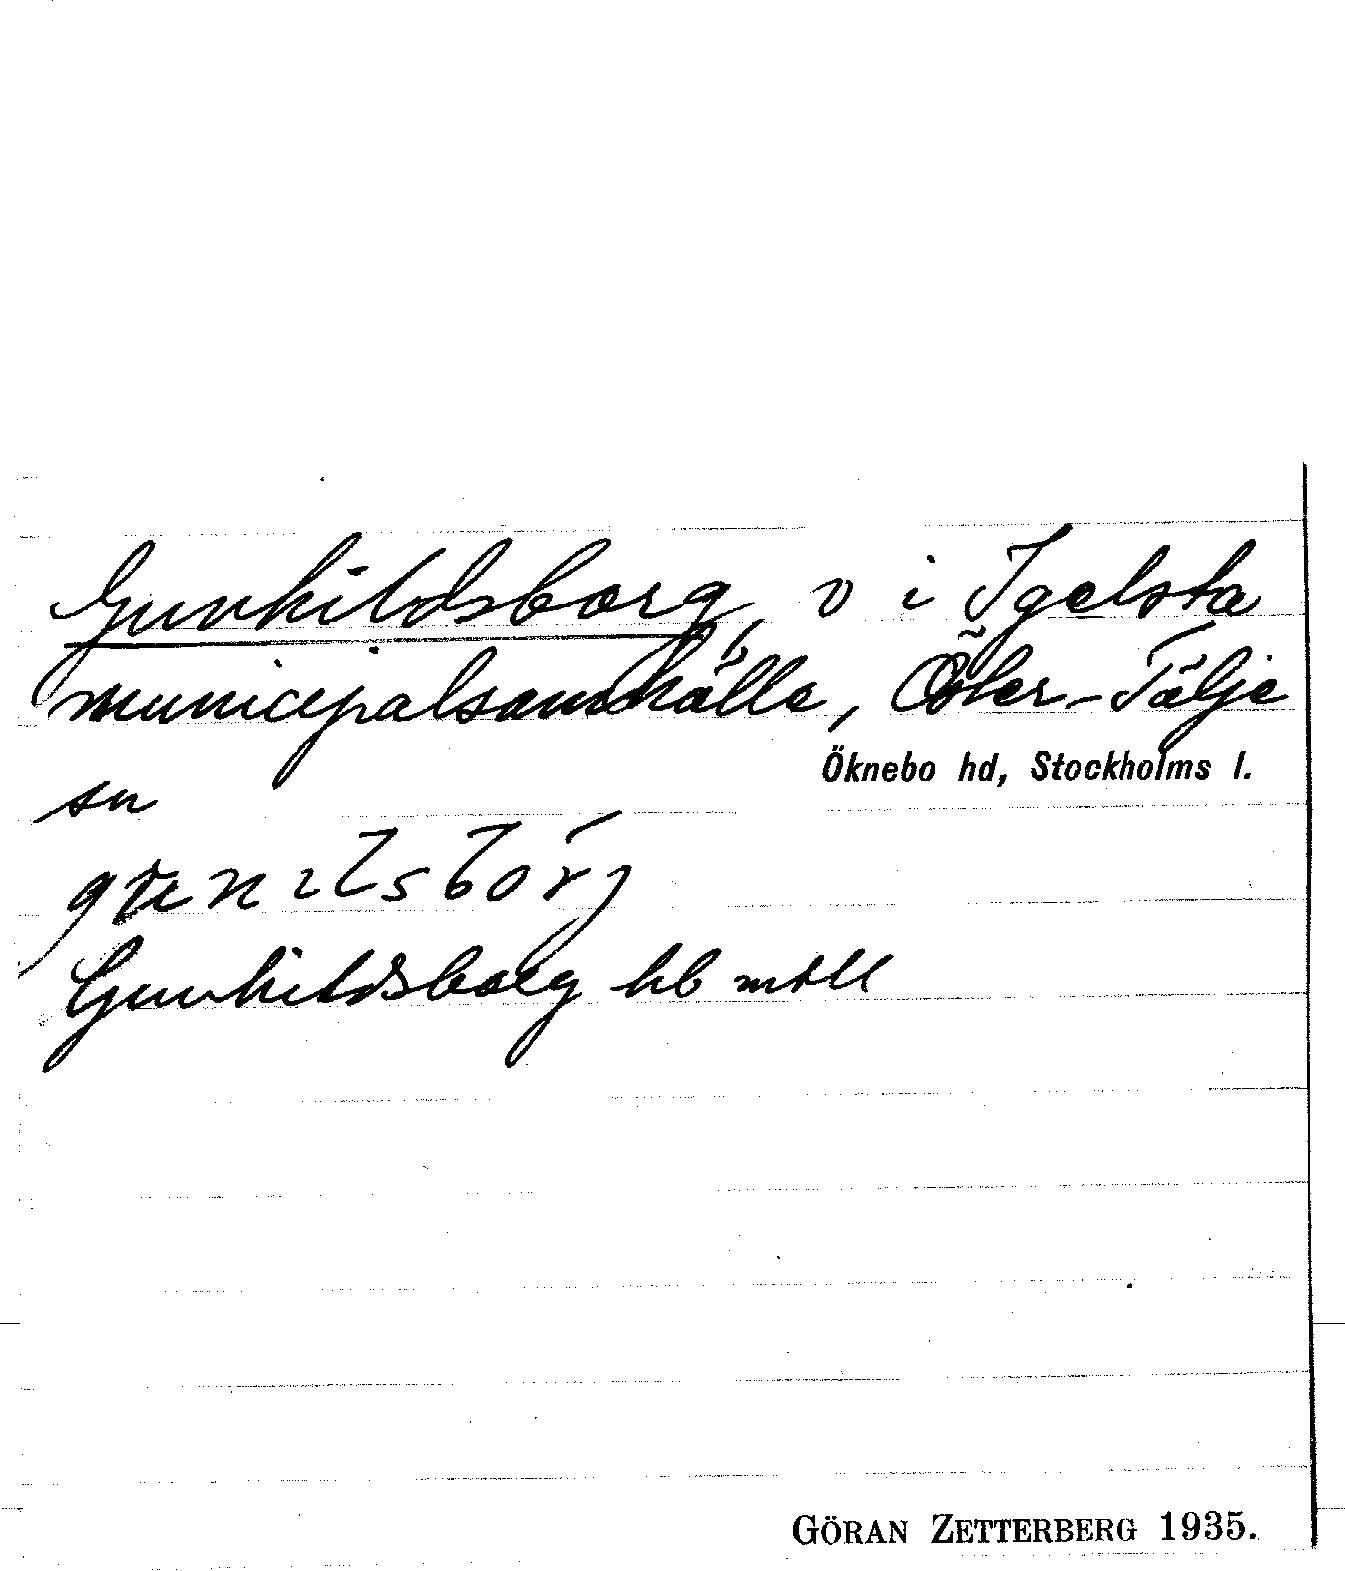 Gunhildsborg, v i Igelsta
municipalsamhälle, Öster-Tälje
Öknebo hd, Stockholms l.
sn
Gunhildsborg hb mtll
GÖRAN ZETTERBERG 1935.